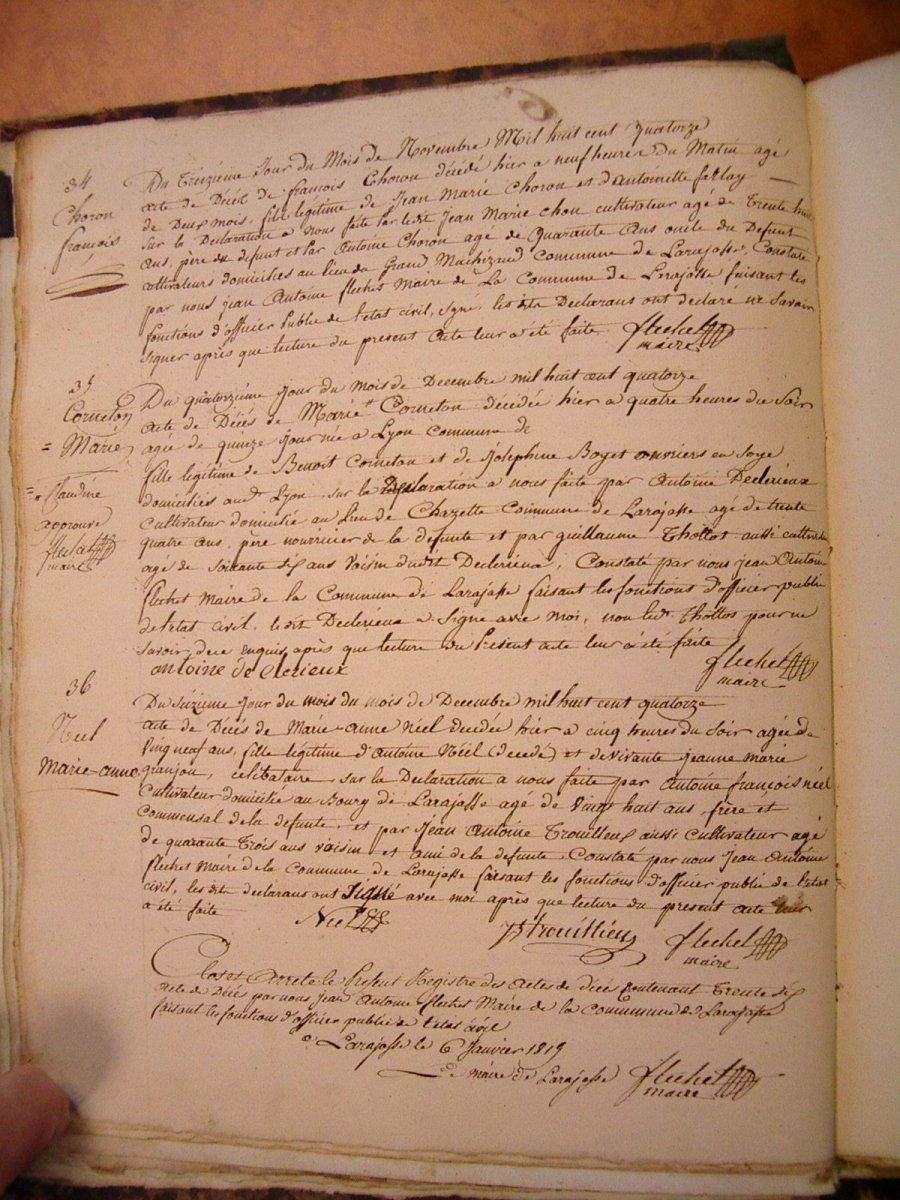 34
Choron
françois
Du Treizième Jour du Mois de Novembre Mil huit cent quatorze
acte de Décès de françois Choron décédé hier a neuf heures du Matin agé
de Deux mois fils légitime de Jean Marie Choron et d'Antoinette fallay
Sur la Déclaration a Nous faite par ledit Jean Marie chon cultivateur agé de Trente huit
ans, père du defunt et par Antoine Choron agé de Quarante Ans oncle du Defunt
cultivateurs domicilies au lieu du Grand commune de Larajasse, Constaté
par nous jean Antoine flechet Maire de La Commune de Larajasse faisant les
fonctions d'officier Public de l'etat civil, signé, les dits Declarans ont déclaré ne Savoir
signer après que lecture du present acte leur a été faite flechet
maire
35
Corneton
= Marie
= " Claudine
approuvé
flechet
maire
Du quatorzième Jour du mois de Decembre mil huit cent quatorze
acte de Décès de Marie " Corneton décédée hier a quatre heures du Soir
agée de quinze jour née a Lyon commune de
fille légitime de Benoit Corneton et de Joséphine Boget ouvriers en soye
domiciliés aud. Lyon, sur la Déclaration a nous faite par Antoine Declerieux
cultivateur domicilié au Lieu de Chazette Commune de Larajasse agé de trente
quatre ans, père nourricier de la defunte et par guillaume Thollot aussi cultivateur
age de soixante dix ans voisin dudit Declerieux, Constaté par nous jean Antoine
flechet Maire de la Commune de Larajasse faisant les fonctions d'officier public
de l'etat civil. le dit Declerieux a Signé avec moi, non led. thollot pour ne
savoir, de ce enquis après que lecture du Present acte leur a été faite
antoine de clerieux flechet
maire
36
Néel
Marie-anne
Du Sizieme Jour du mois du mois de Decembre mil huit cent quatorze
acte de Décès de Marie-anne Néel décédée hier a cinq heures du Soir agée de
Vingt neuf ans, fille légitime d'Antoine Néel (decedé) et de vivante jeanne marie
granjou, celibataire, sur la Declaration a nous faite par Antoine françois néel
Cultivateur domicilié au Bourg de Larajasse agé de vingt huit ans, frère et
commensal de la defunte, et par Jean Antoine Trouilleux aussi cultivateur agé
de quarante Trois ans voisin et ami de la defunte, Constaté par nous Jean Antoine
flechet Maire de la Commune de Larajasse faisant les fonctions d'officier public de l'etat
civil, les dits declarans ont signé avec moi après que lecture du present acte leur
a été faite Néel trouillieux flechet
maire
Clos et Arreté le Present Registre des actes de décès Contenant Trente six
acte de Décès par nous Jean Antoine flechet Maire de la commune de Larajasse
faisant les fonctions d'officier public de l'etat civil
a Larajasse le 6 Janvier 1815
Le maire de Larajasse flechet
maire